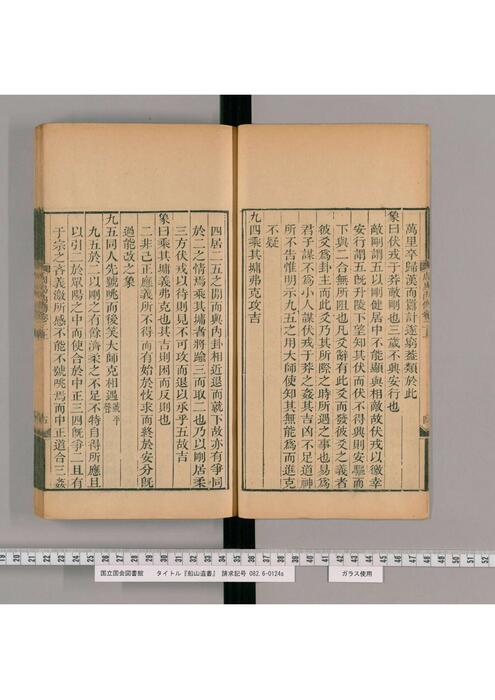 萬里卒歸漢而嚚計遂窮蓋類於此
象曰伏戎于莽敵剛也三歲不興安行也
敵剛謂五以剛健居中不能顯與相敵故伏戎以徼幸
安行謂五旣升陵下望知其伏而不得興則安驅而
下與二合無所阻也凡爻辭有此爻而發彼爻之義者
彼爻爲卦主而此爻乃其所際之時所遇之事也易爲
君子謀不爲小人謀伏戎于莽之姦其吉凶不足道神
所不告惟明示九五之用大師使知其無能爲而進克
不疑
九四乘其墉弗克攻吉
四居二五之閒而與內卦相近退而就下故亦有爭同
於二之情焉乘其墉者將踰三而取二也乃以剛居柔
三方伏戎以待則見不可攻而退以承乎五故吉
象曰乘其墉義弗克也其吉則困而反則也
二非己正應義所不得而有始於忮求而終於安分旣
過能改之象
九五同人先號咷而後笑大師克相遇 號平聲
九五於二以剛之有餘濟柔之不足不特自得所應且
以引二於眾陽之中而使合於中正三四旣爭二且有
于宗之吝義激所感不能不號咷焉而中正道合三姦
国立国会図書館 タイトル『船山遺書』 請求記号 082.6-0124s
ガラス使用